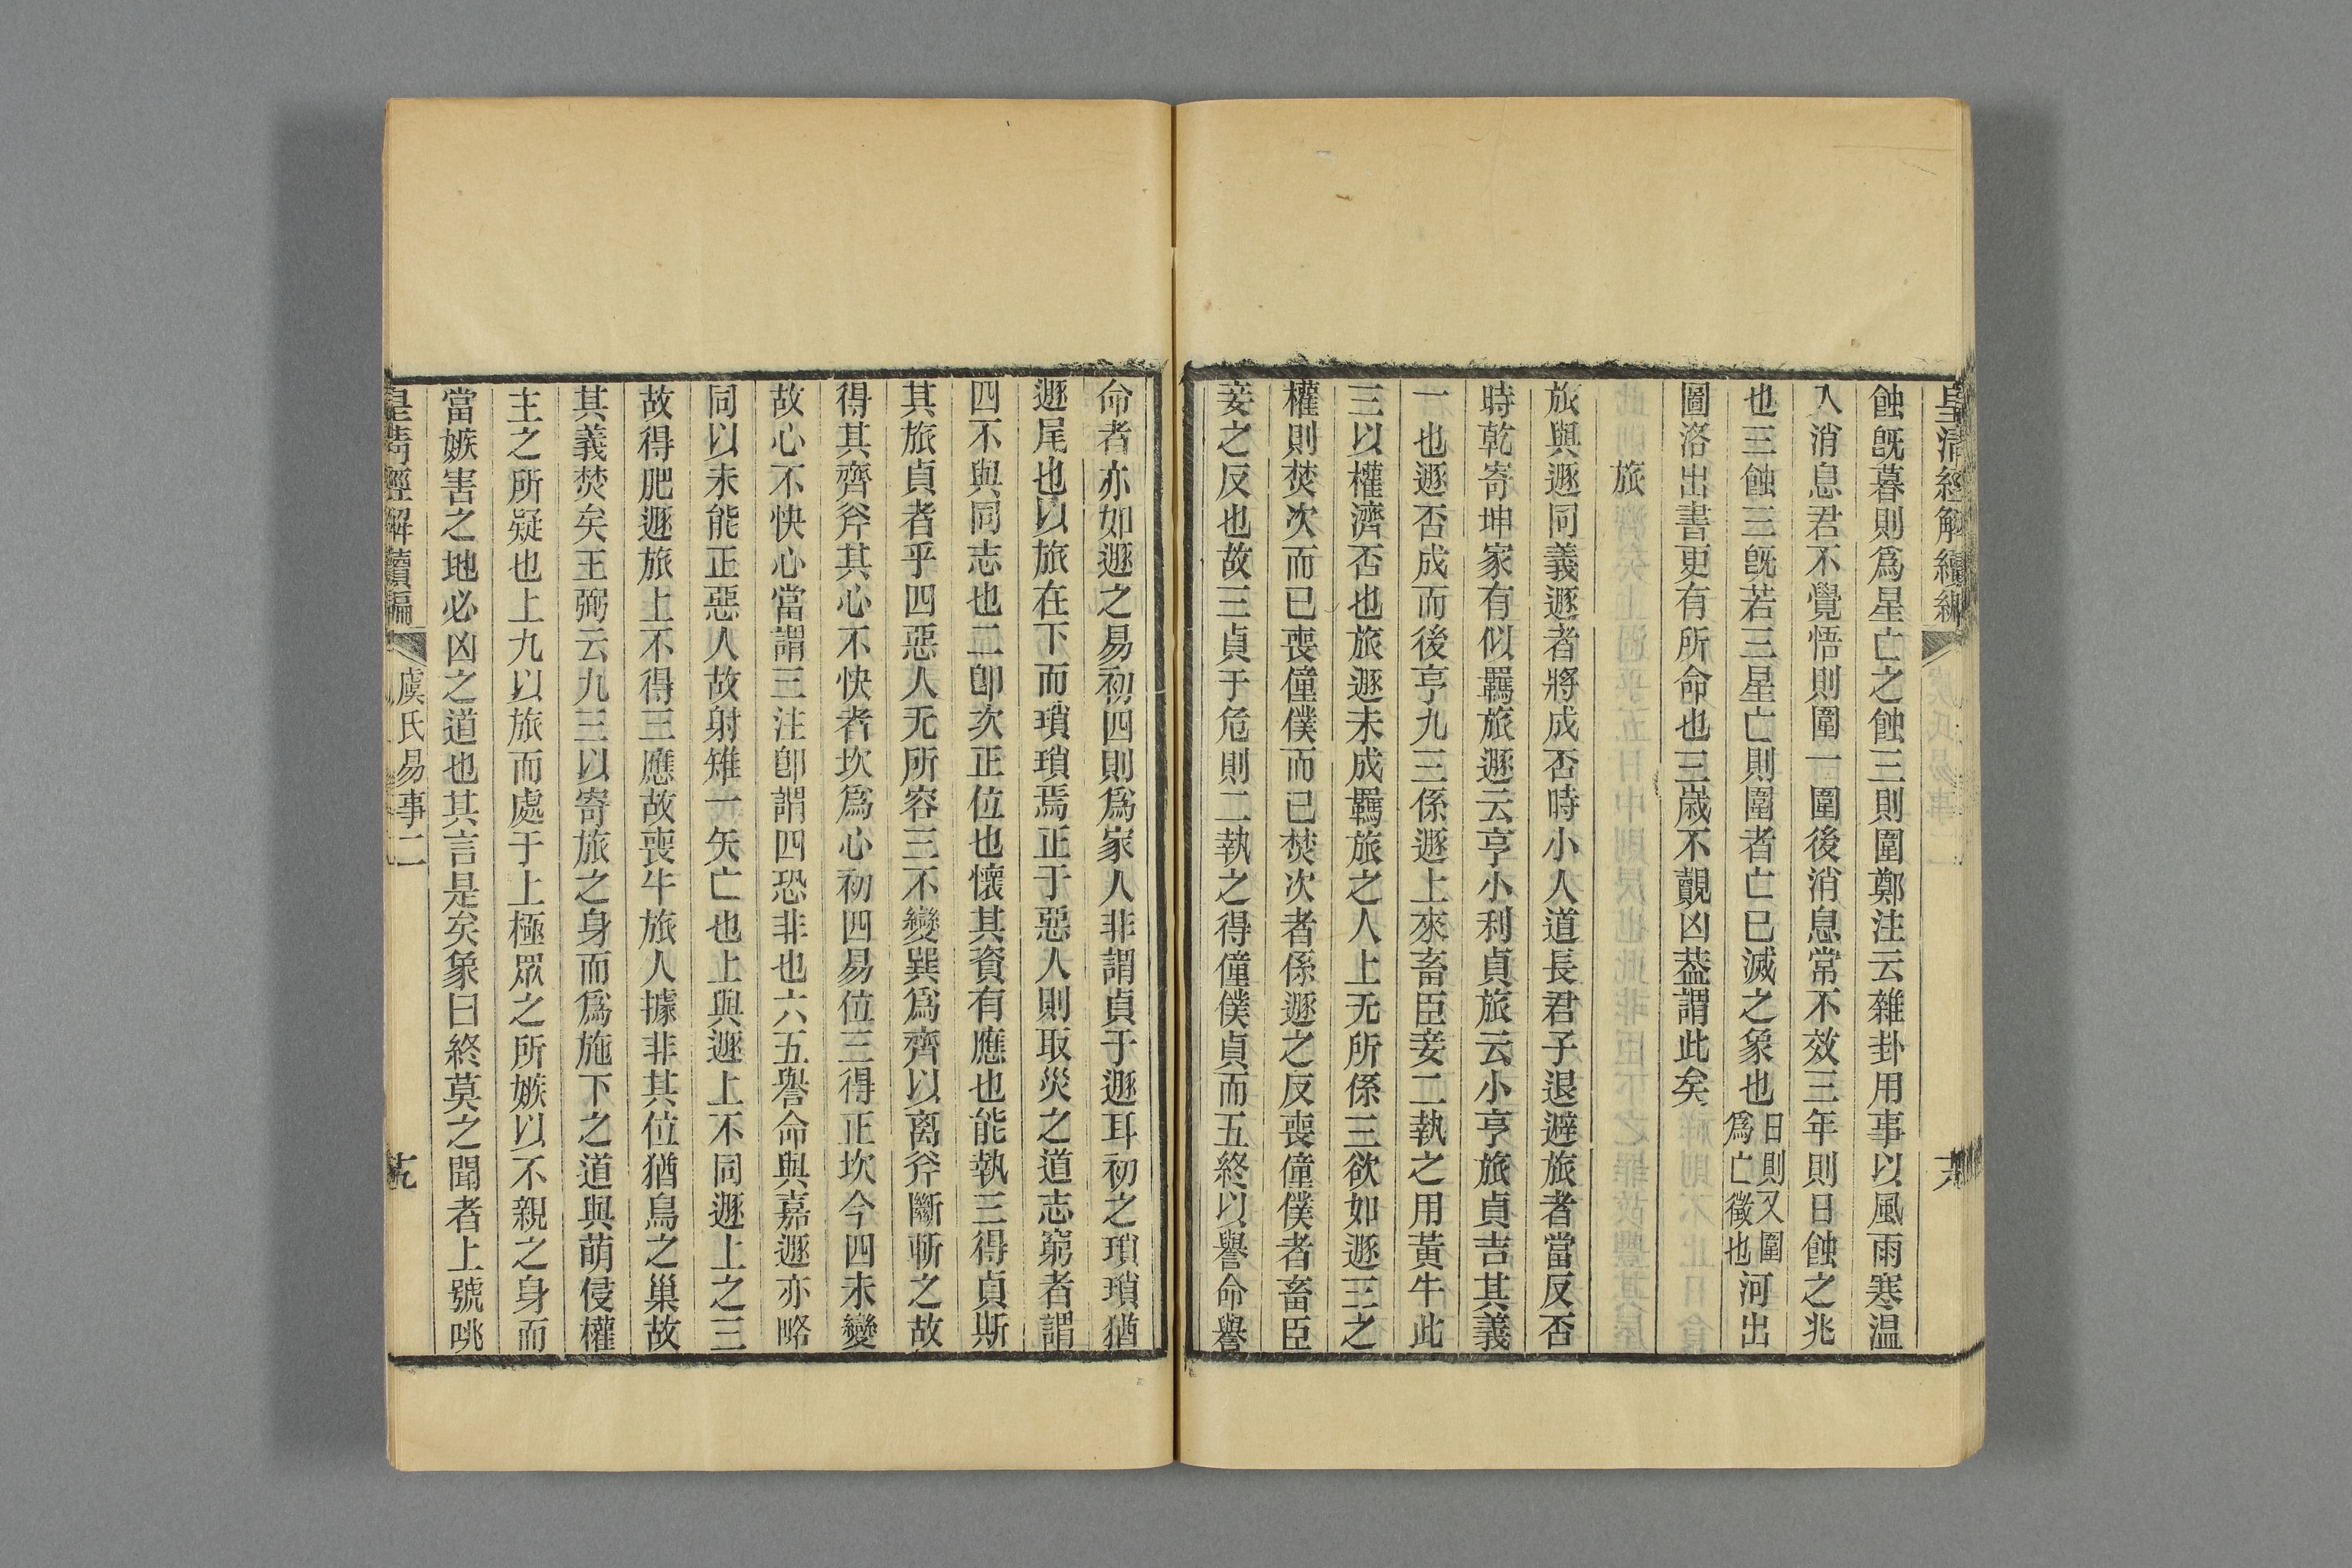 皇清經解續編
蝕旣暮則爲星亡之蝕三則圍鄭注云雜卦用事以風雨寒温
入消息君不覺悟則圍一圍後消息常不效三年則日蝕之兆
也三蝕三旣若三星亡則圍者亡已滅之象也日則又圍爲亡徵也河出
圖洛出書更有所命也三歲不覿凶葢謂此矣
旅
旅與遯同義遯者將成否時小人道長君子退避旅者當反否
時乾寄坤家有似羈旅遯云亨小利貞旅云小亨旅貞吉其義
一也遯否成而後亨九三係遯上來畜臣妾二執之用黃牛此
三以權濟否也旅遯未成羈旅之人上无所係三欲如遯三之
權則焚次而已喪僮僕而已焚次者係遯之反喪僮僕者畜臣
妾之反也故三貞于危則二執之得僮僕貞而五終以譽命譽
命者亦如遯之易初四則爲家人非謂貞于遯耳初之瑣瑣猶
遯尾也以旅在下而瑣瑣焉正于惡人則取災之道志窮者謂
四不與同志也二卽次正位也懷其資有應也能執三得貞斯
其旅貞者乎四惡人无所容三不變巽爲齊以离斧斷斬之故
得其齊斧其心不快者坎爲心初四易位三得正坎今四未變
故心不快心當謂三注卽謂四恐非也六五譽命與嘉遯亦略
同以未能正惡人故射雉一矢亡也上與遯上不同遯上之三
故得肥遯旅上不得三應故喪牛旅人據非其位猶鳥之巢故
其義焚矣王弼云九三以寄旅之身而爲施下之道與萌侵權
主之所疑也上九以旅而處于上極眾之所嫉以不親之身而
當嫉害之地必凶之道也其言是矣象曰終莫之聞者上號咷
皇清經解續編
虞氏易事二